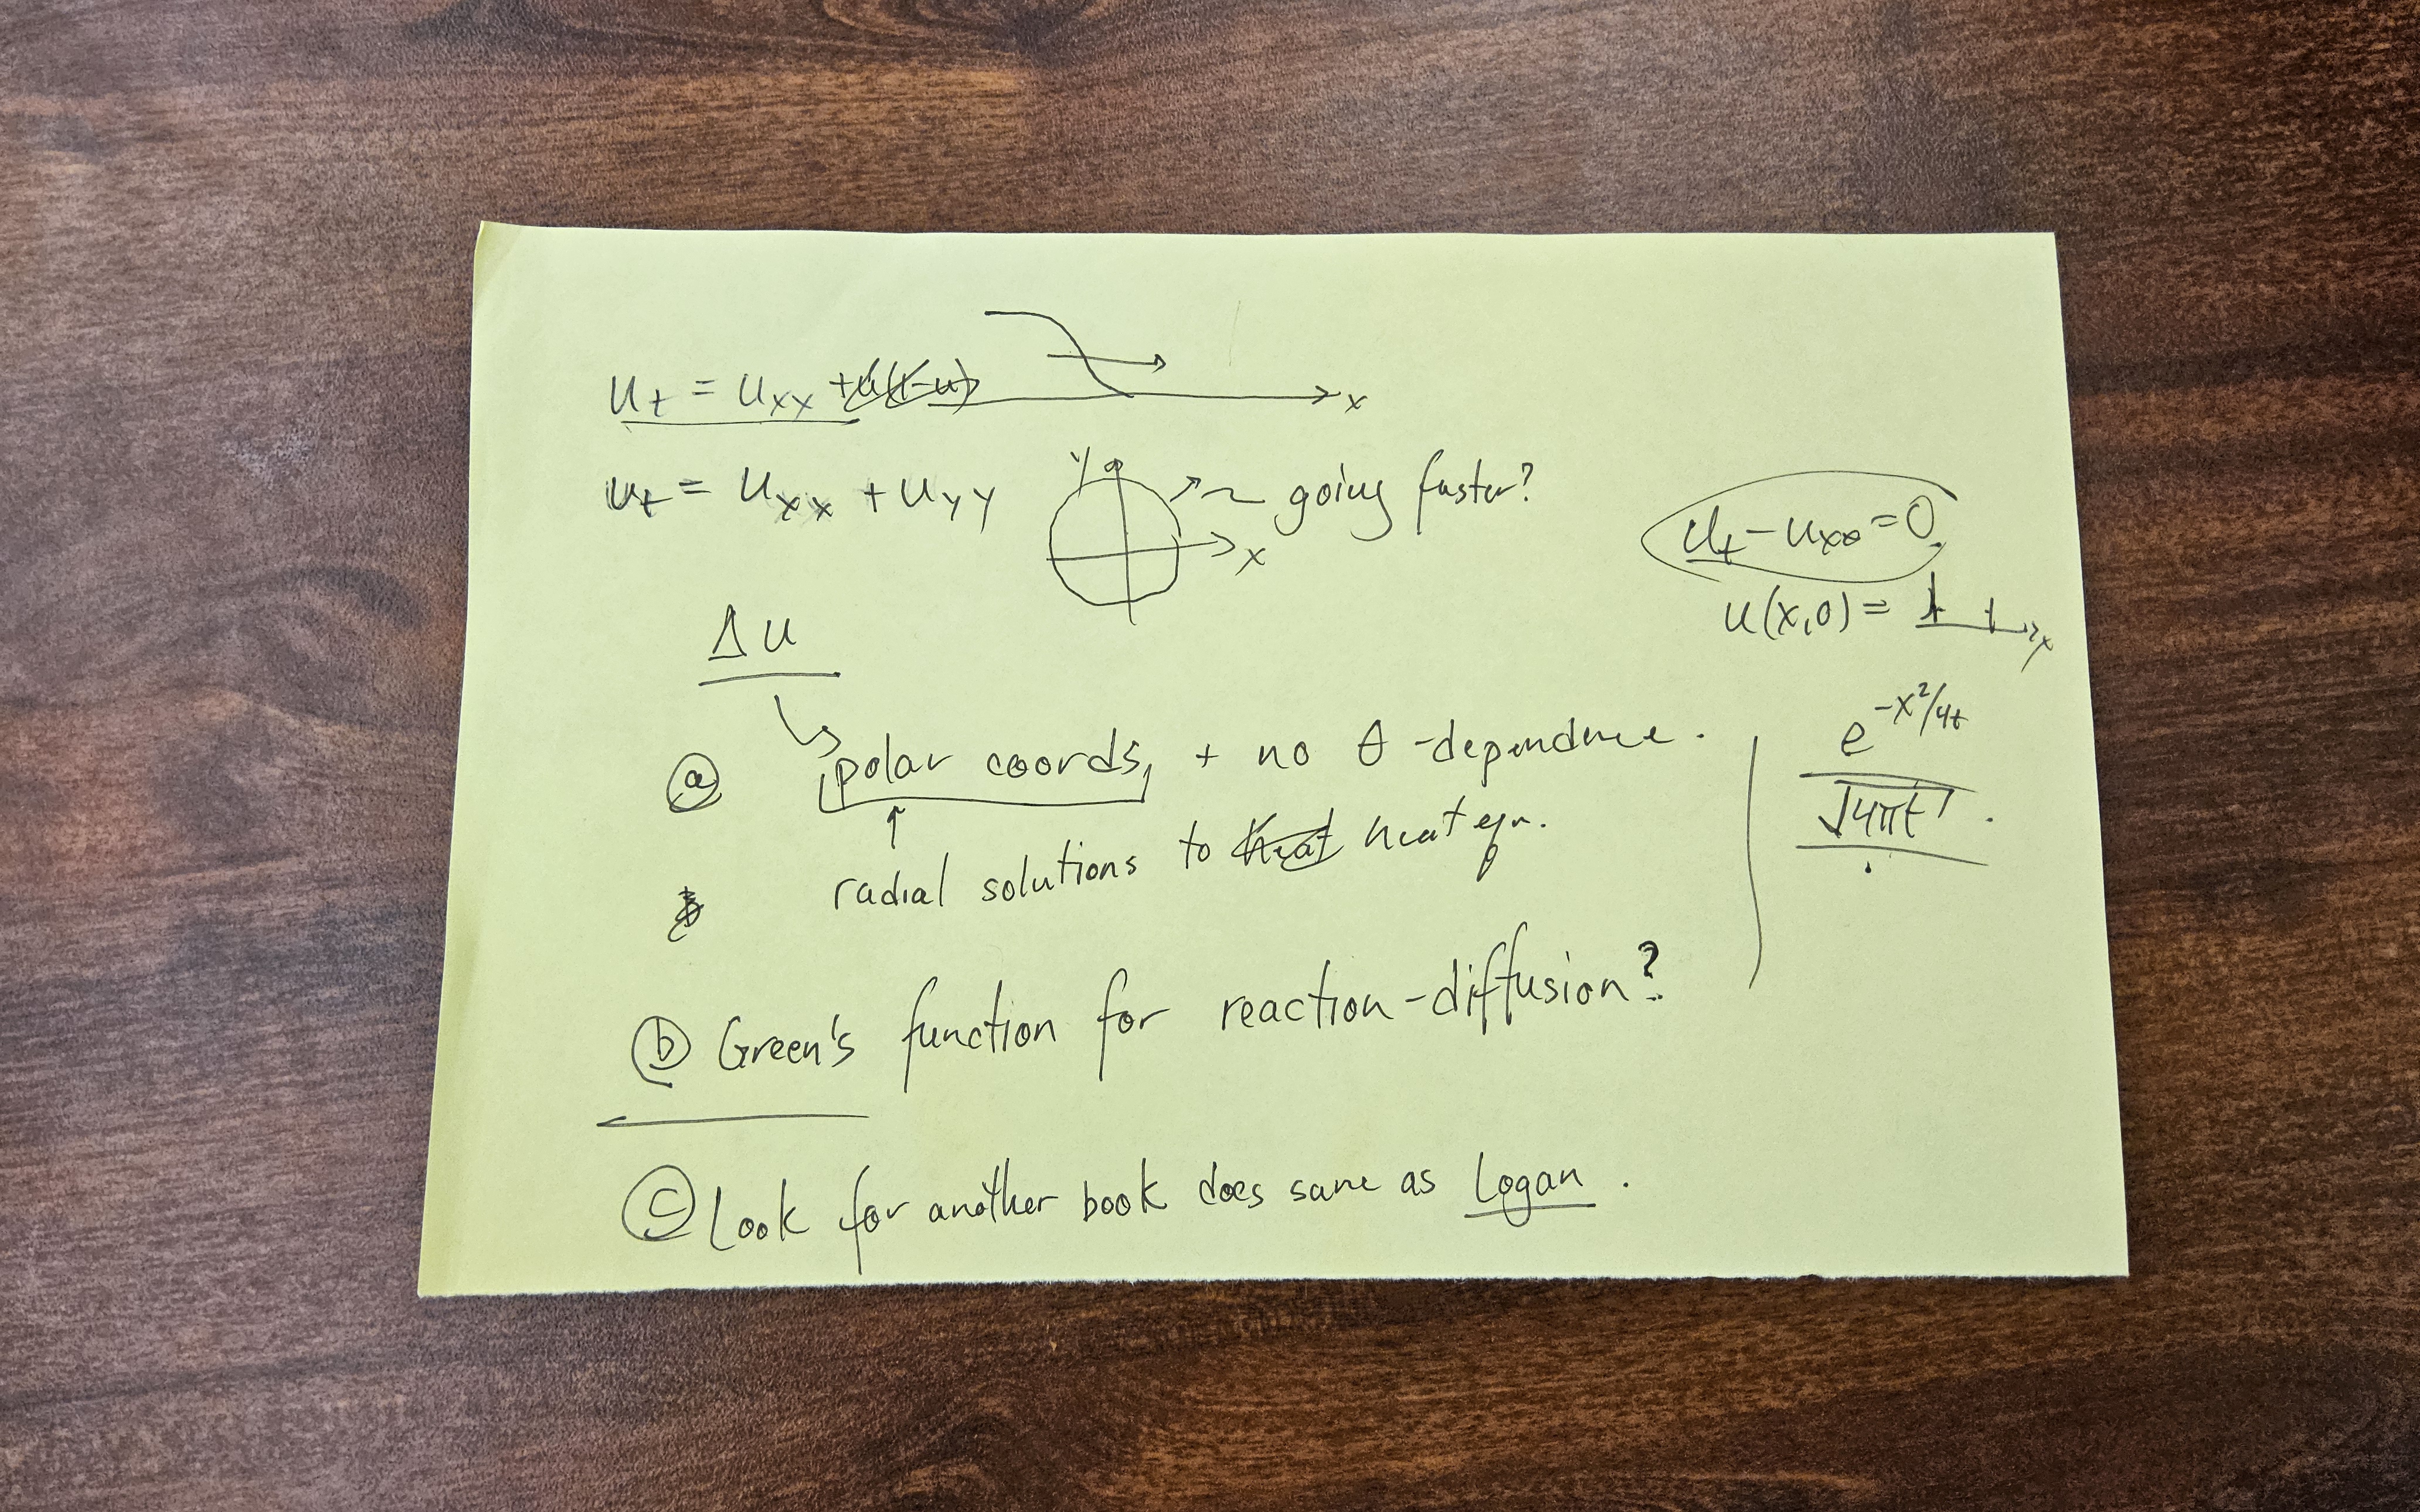 u_t = u_xx + u(1-u)
x
u_t = u_xx + u_yy
y
x
going faster?
u_t - u_xx = 0
u(x,0) =
x
Δu
ⓐ polar coords, + no θ-dependence.
radial solutions to heat heat eqn.
e^{-x²/4t}
√4πt .
ⓑ Green's function for reaction-diffusion?
ⓒ Look for another book does same as Logan .